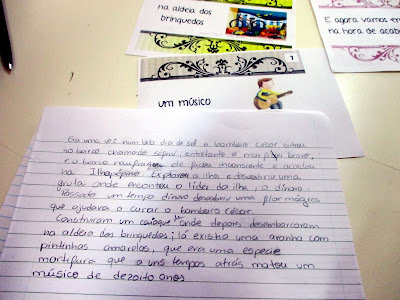 na aldeia dos
brinquedos
E agora vamos en
na hora de acaba
7
um músico
Era uma vez num belo dia de sol o bombeiro César entrou
no barco chamado entretanto o mar ficou bravo,
e o barco naufragou ele ficou inconsciente e acordou
na Explorou a ilha e descobriu uma
gruta onde encontrou o líder da ilha, o dinaro.
Passado um tempo dinaro descobriu uma flor mágica
que ajudava a curar o bombeiro César.
Construiram um caiaque onde depois desembarcaram
na aldeia dos brinquedos; lá existia uma aranha com
pintinhas amarelas, que era uma especie
mortifera que a uns tempos atrás matou um
músico de dezoito anos